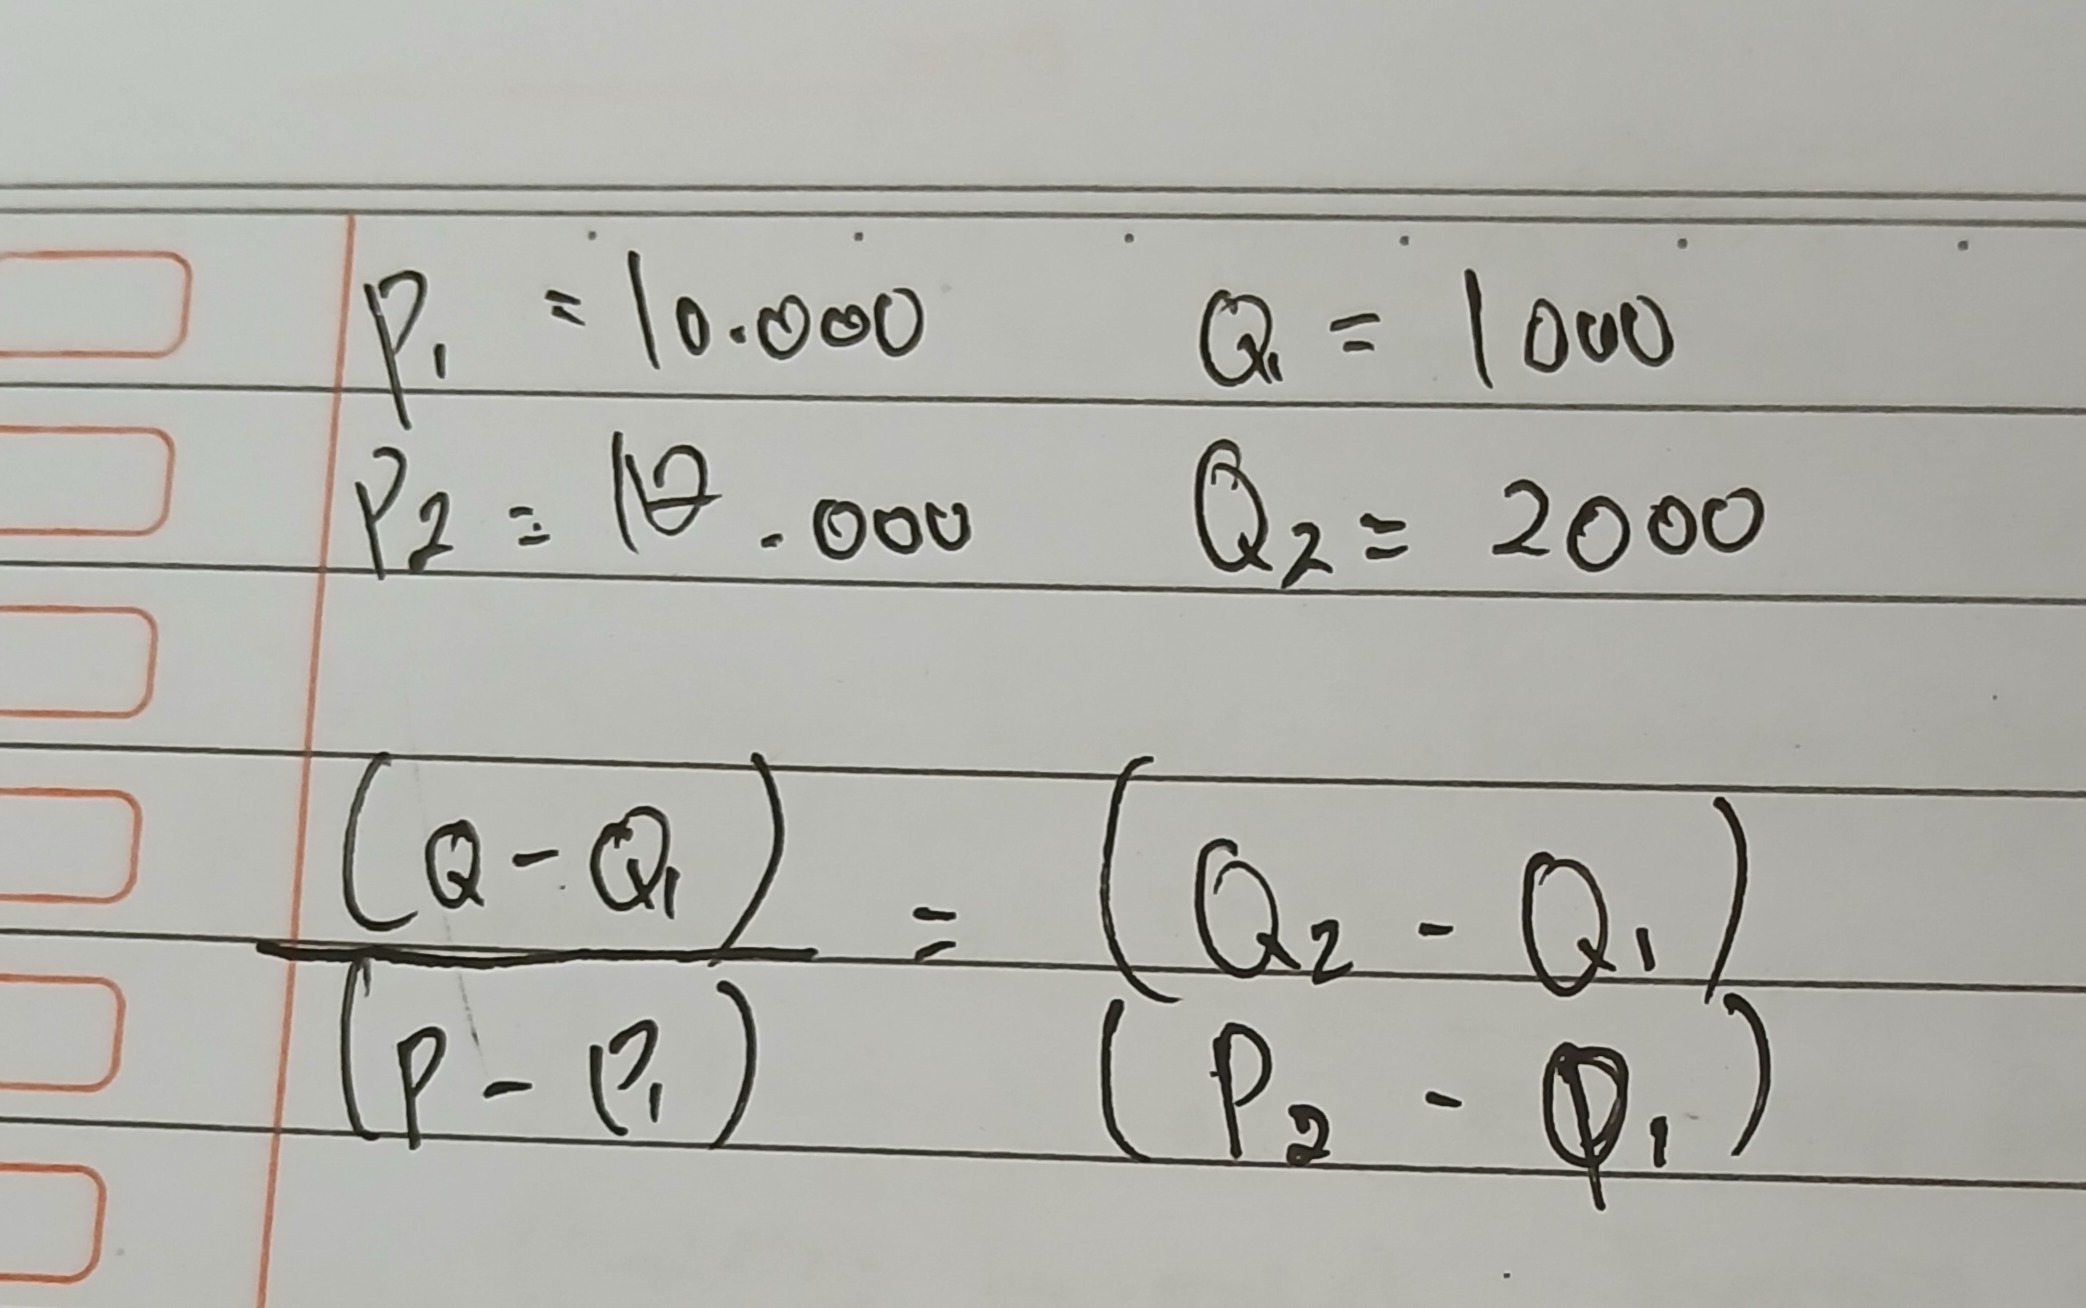 P₁ = 10.000 Q₁ = 1000
P₂ = 12.000 Q₂ = 2000
(Q - Q₁) = (Q₂ - Q₁)
(P - P₁) (P₂ - P₁)